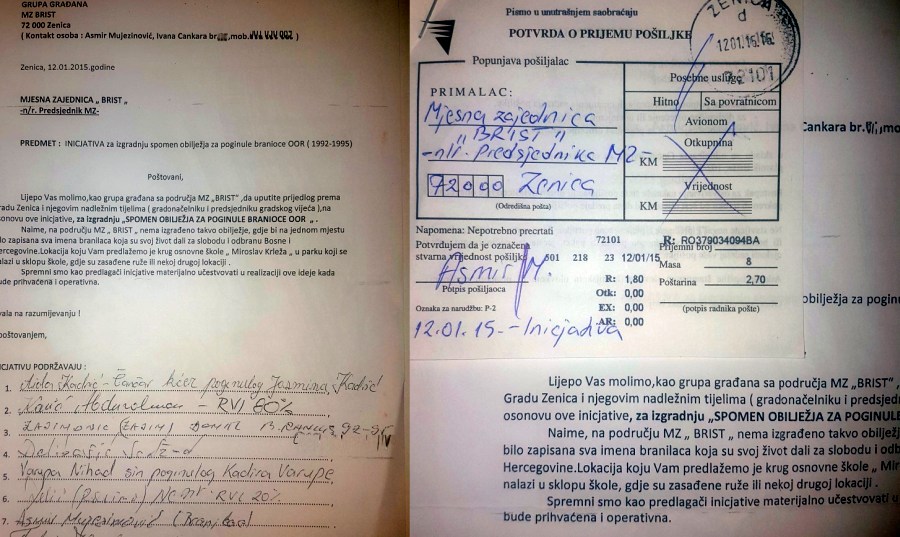 GRUPA GRAĐANA
MZ BRIST
72 000 Zenica
( Kontakt osoba : Asmir Mujezinović, Ivana Cankara br. ,mob. )
Zenica, 12.01.2015.godine
MJESNA ZAJEDNICA „ BRIST „
-n/r. Predsjednik MZ-
PREDMET : INICIJATIVA za izgradnju spomen obilježja za poginule branioce OOR ( 1992-1995)
Poštovani,
Lijepo Vas molimo,kao grupa građana sa područja MZ „BRIST" ,da uputite prijedlog prema
Gradu Zenica i njegovim nadležnim tijelima ( gradonačelniku i predsjedniku gradskog vijeća ),na
osonovu ove inicijative, za izgradnju „SPOMEN OBILJEŽJA ZA POGINULE BRANIOCE OOR „ .
Naime, na području MZ „ BRIST „ nema izgrađeno takvo obilježje, gdje bi na jednom mjestu
bilo zapisana sva imena branilaca koja su svoj život dali za slobodu i odbranu Bosne i
Hercegovine.Lokacija koju Vam predlažemo je krug osnovne škole „ Miroslav Krleža „ u parku koji se
nalazi u sklopu škole, gdje su zasađene ruže ili nekoj drugoj lokaciji .
Spremni smo kao predlagači inicijative materijalno učestvovati u realizaciji ove ideje kada
bude prihvaćena i operativna.
vala na razumijevanju !
poštovanjem,
NICIJATIVU PODRŽAVAJU :
1. Aida Kadrić - Čančar kćer poginulog Jasmina Kadrić
2. Karić Abdurahman - RVI 80%
3.
4.
5. Varupa Nihad sin poginulog Kadira Varupe
6. RVI 20%
7. Asmir Mujezinović (Branilac)
Pismo u unutrašnjem saobraćaju
POTVRDA O PRIJEMU POŠILJKE
ZENICA
d
12.01.15.16
72101
Popunjava pošiljalac
PRIMALAC:
Mjesna zajednica
„BRIST"
-n/r. Predsjednika MZ-
72000 Zenica
(Odredišna pošta)
Posebne usluge
Hitno Sa povratnicom
Avionom
Otkupnina
KM
Vrijednost
KM
Napomena: Nepotrebno precrtati
Potvrđujem da je označena
stvarna vrijednost pošiljke
Asmir M.
Potpis pošiljaoca
Oznaka za narudžbu: P-2
12.01.15.-Inicijativa
72101 R: RO379034094BA
601 218 23 12/01/15
Prijemni broj
Masa 8
R: 1,80 Poštarina 2,70
Otk: 0,00
EX: 0,00 (potpis radnika pošte)
AR: 0,00
Cankara br. ,mo
obilježja za poginu
Lijepo Vas molimo,kao grupa građana sa područja MZ „BRIST" ,
Gradu Zenica i njegovim nadležnim tijelima ( gradonačelniku i predsjed
osonovu ove inicijative, za izgradnju „SPOMEN OBILJEŽJA ZA POGINULE
Naime, na području MZ „ BRIST „ nema izgrađeno takvo obiljež
bilo zapisana sva imena branilaca koja su svoj život dali za slobodu i odb
Hercegovine.Lokacija koju Vam predlažemo je krug osnovne škole „ Miro
nalazi u sklopu škole, gdje su zasađene ruže ili nekoj drugoj lokaciji .
Spremni smo kao predlagači inicijative materijalno učestvovati u
bude prihvaćena i operativna.